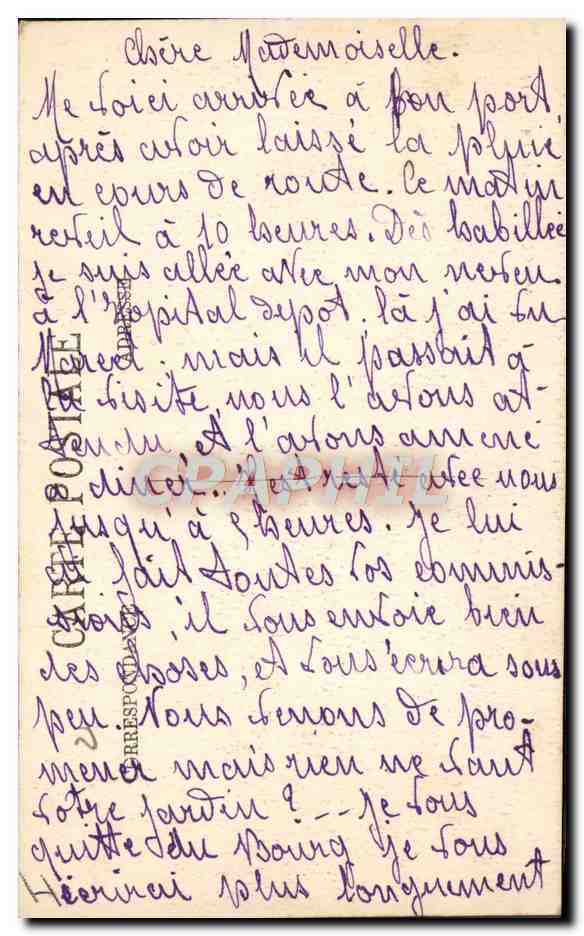 Chère Mademoiselle.
Me voici arrivée à bon port,
après avoir laissé la pluie
en cours de route. Ce matin
reveil à 10 heures. Dès habillée
je suis allée avec mon neveu
à l'hopital depot. là j'ai vu
mais il passait à
la visite, nous l'avons at-
tendu, et l'avons amené
diner. Il est resté avec nous
jusqu'à 5 heures. Je lui
ai fait toutes vos commis-
sions, il vous envoie bien
des choses, et vous écrira sous
peu. Nous venons de pro-
mener mais rien ne vaut
votre jardin ? --- je vous
quitte du Bourg je vous
écrirai plus longuement
CARTE POSTALE
CORRESPONDANCE
ADRESSE
CPAPHIL